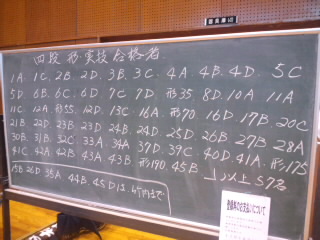 四段 形・実技合格者
1A. 1C. 2B. 2D. 3B. 3C. 4A. 4B. 4D. 5C
5D. 6B. 6C. 6D. 7C 7D. 形35 8D. 10A 11A
11C. 12A 形55. 12D. 13C 16A. 形70. 16D 17B 20C
21B 22D. 23B 23D 24B. 24D. 25D 26B. 27B 28A
30B. 31B. 32C 33A. 34A 37D. 39C 40D. 41A. 形175
41C 42A. 42B 43A 43B 形190. 45B 以上57名
15B 26D. 35A. 44B. 45Dは、4/7付まで
登録料のお支払いについて